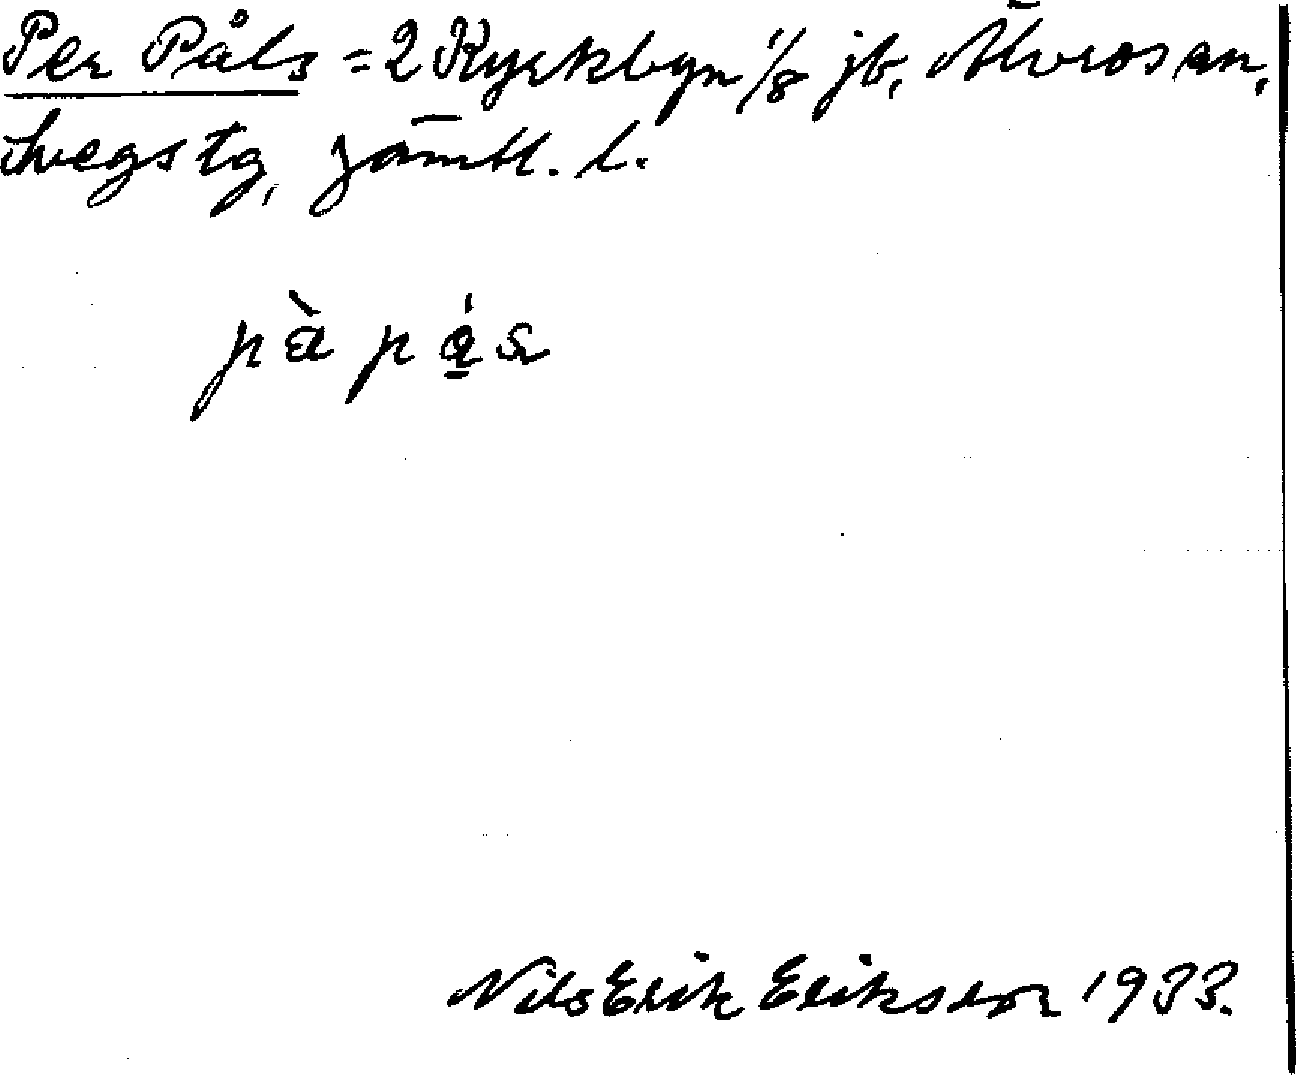 Per Påls = 2 Kyrkbyn 1/8 jb, Älvros sn,
Svegs tg, Jämtl. l.
pà pǻs
Nils Erik Eriksson 1933.